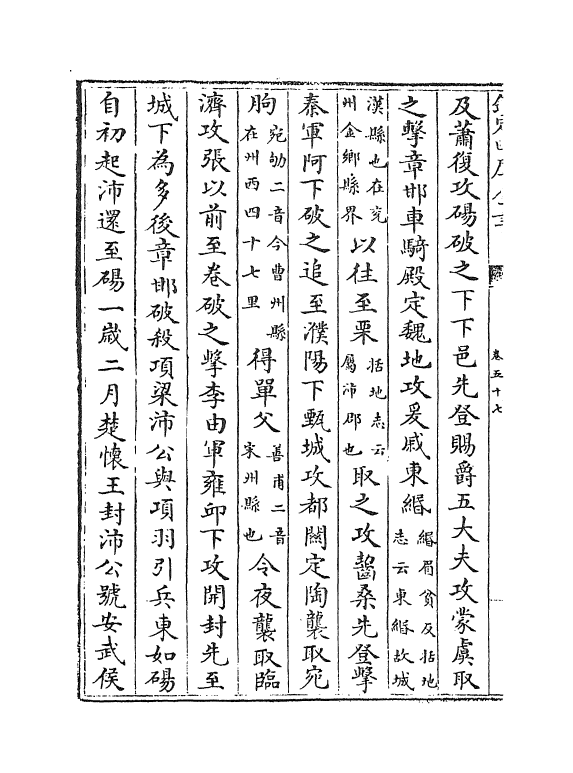 欽定四庫全書
卷五十七
及蕭復攻碭破之下下邑先登賜爵五大夫攻蒙虞取
之擊章邯車騎殿定魏地攻爰戚東緡緡眉貧反括地志云東緡故城
漢縣也在兗州金鄉縣界以往至栗括地志云屬沛郡也取之攻齧桑先登擊
秦軍阿下破之追至濮陽下甄城攻都關定陶襲取宛
朐宛劬二音今曹州縣在州西四十七里得單父善甫二音宋州縣也令夜襲取臨
濟攻張以前至卷破之擊李由軍雍邱下攻開封先至
城下為多後章邯破殺項梁沛公與項羽引兵東如碭
自初起沛還至碭一歲二月楚懷王封沛公號安武侯